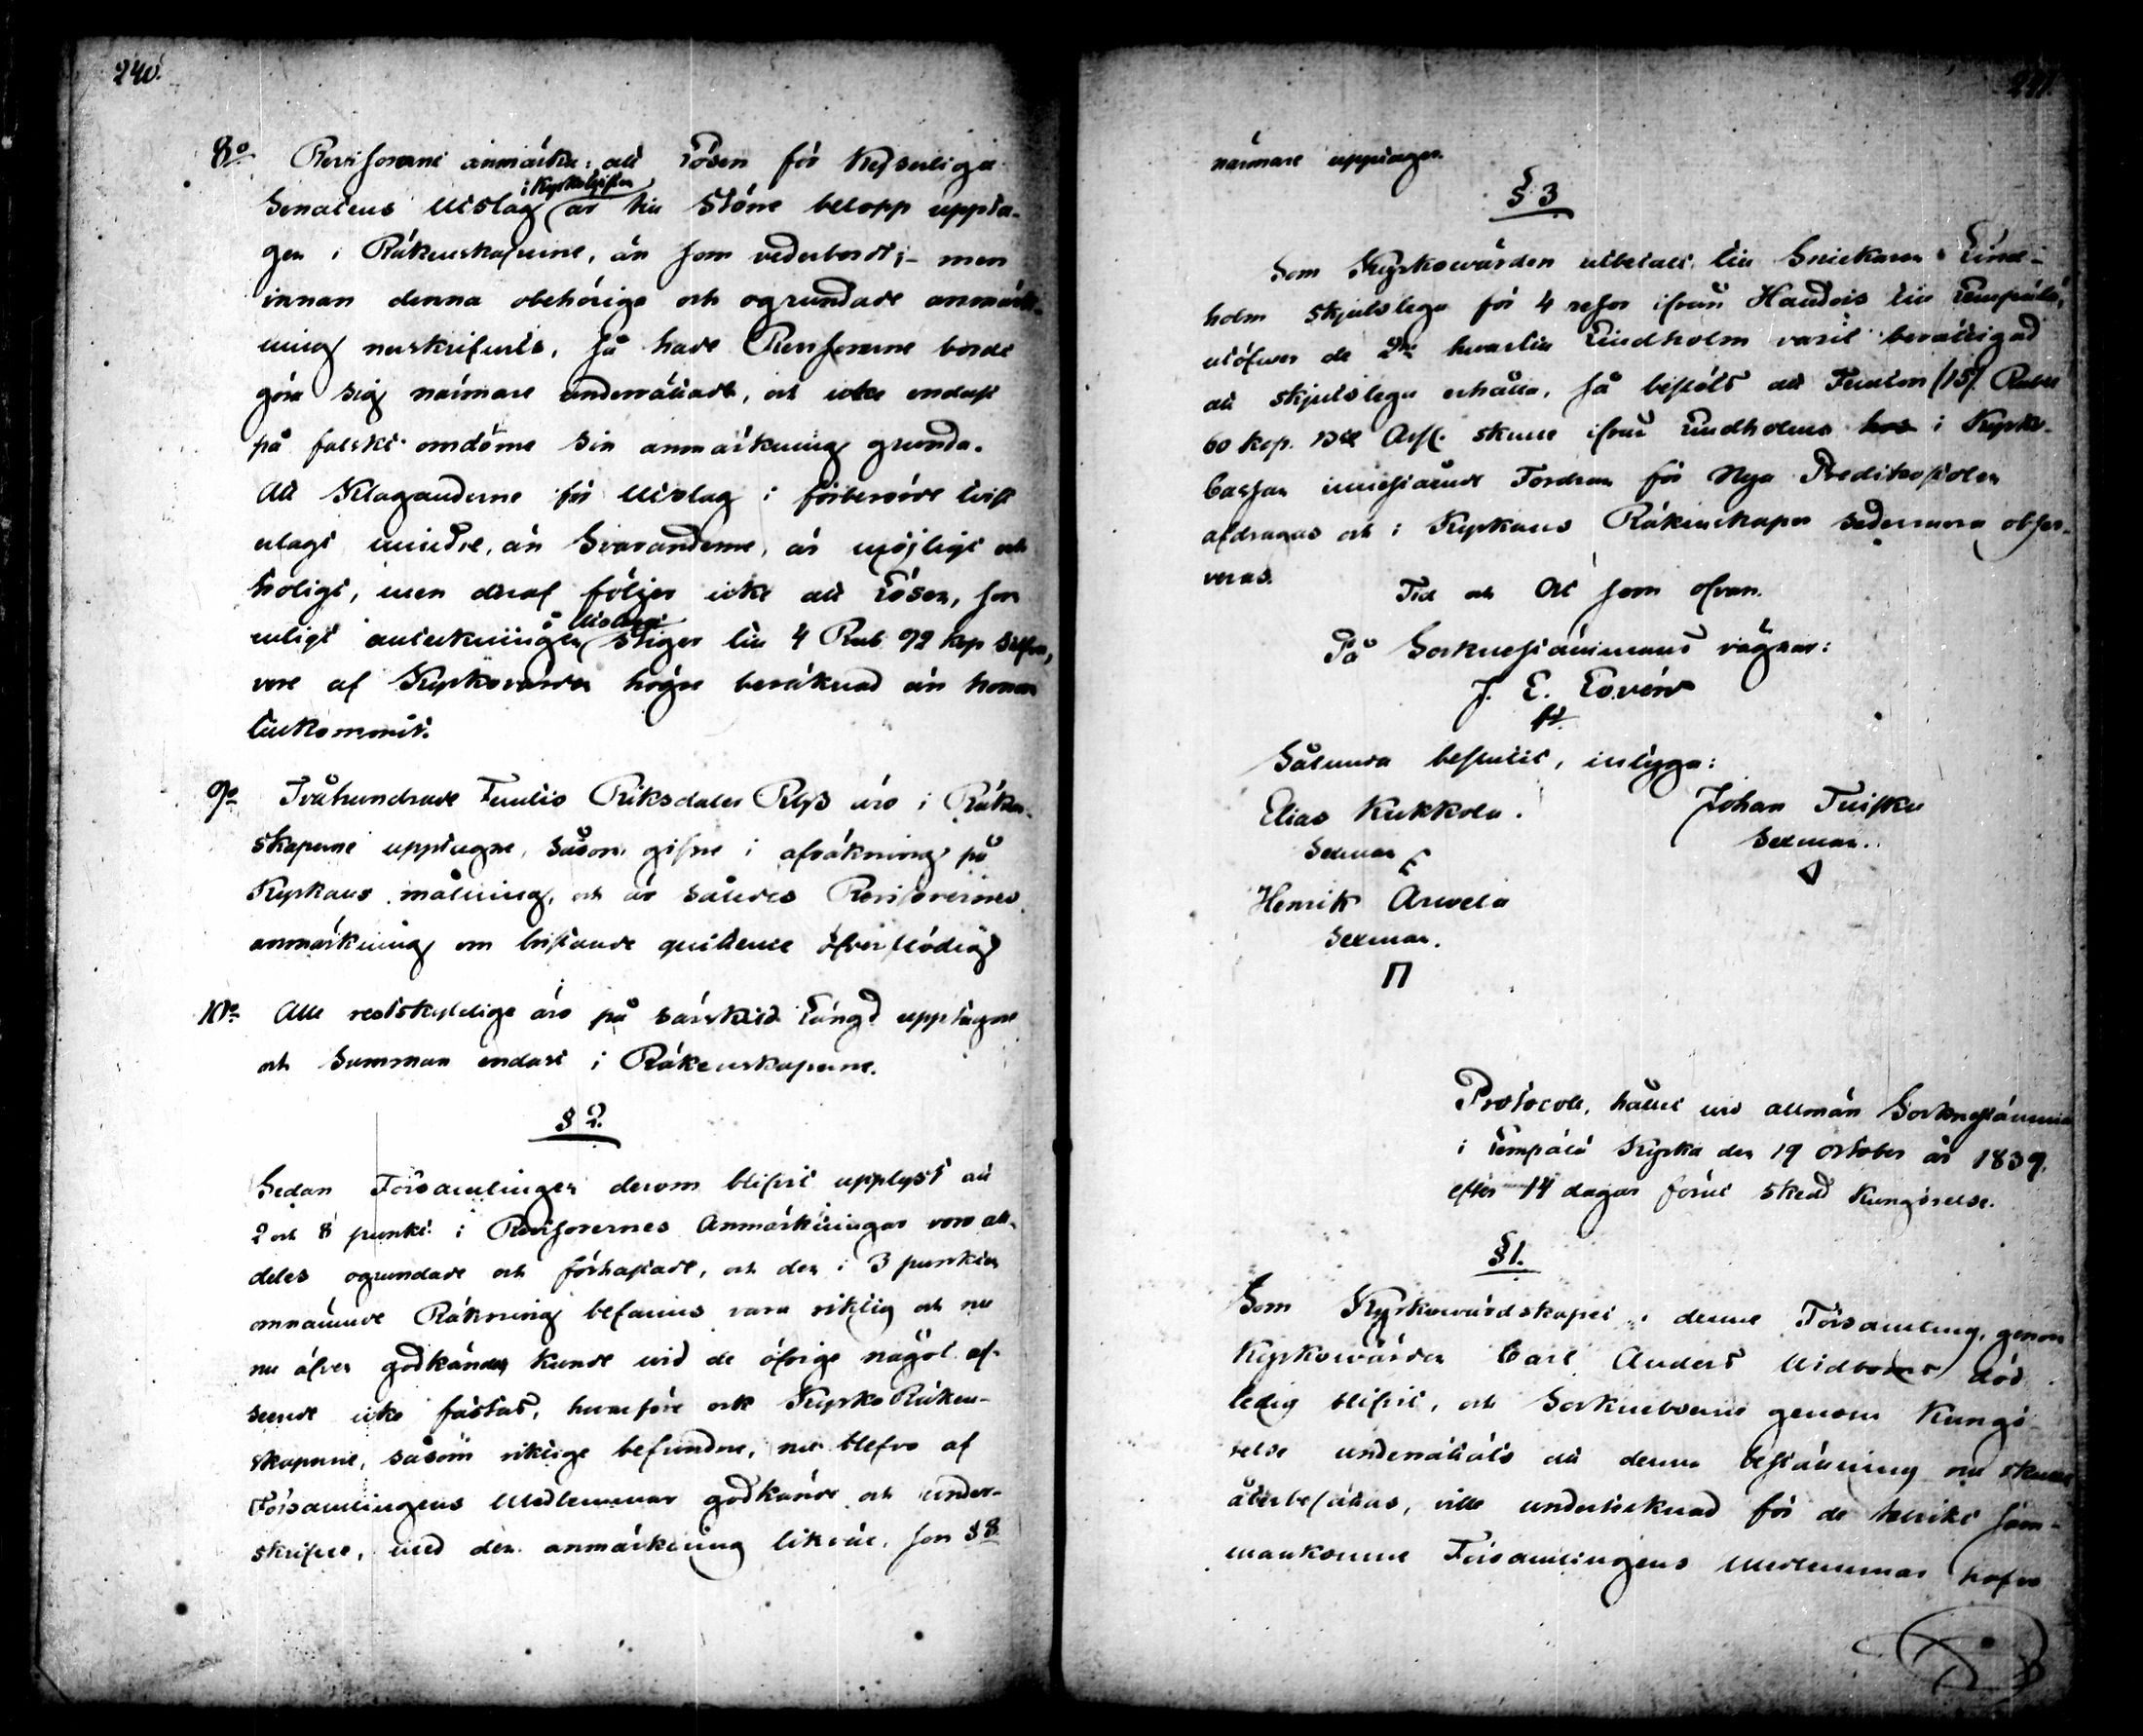 240.
8o Revisorerne anmärka: att Lösen för Kejserliga
Senatens Utslag i Kyrkotvisten är till Större belopp uppta-
gen i Räkenskaperne, än som vederbordt; - men
innan denna obehöriga och ogrundade anmärk-
ning nerskrifvits, så hade Revisorerne bordt
göra sig närmare underrättade, och icke endast
på falskt omdöme sin anmärkning grunda.
Att Klaganderne för Utslag i förberörde tvist
utagt mindre, än Svaranderne, är möjligt och
troligt, men deraf följer icke att Lösen, som
enligt anteckningen å Utslaget stiger till 4 Rub 92 kop Silfver,
vore af Kyrkovärden högre beräknad än honom
tillkommit.
9o Tvåhundrade Femtio Riksdaler Rgs äro i Räken-
skaperne upptagne, såsom gifne i afräkning på
Kyrkans målning, och är således Revisorernes
anmärkning om bristande quittence öfverflödig
10o Alle restskyldige äro på särskild Längd upptagne
och Summan endast i Räkenskaperne.
§ 2.
Sedan Församlingen derom blifvit upplyst att
2 och 8 punkt. i Revisorernes Anmärkningar voro all-
deles ogrundade och förhastade, och den i 3 punkten
omnämnde Räkning befanns vara riktig och nu
nu äfven godkändes kunde vid de öfrige något af-
seende icke fästas, hvarföre ock Kyrko Räken-
skaperne, såsom riktige befundne, nu blefvo af
Församlingens Medlemmar godkände och under-
skrifne, med den anmärkning likväl, som § 8
241.
närmare upptager.
§ 3
Som Kyrkovärden utbetalt till Snickaren Lind-
holm skjutslega för 4 resor ifrån Handois till Lempälä,
utöfver de 2ne hvartill Lindholm varit berättigad
att skjutslega erhålla, så beslöts att Femton (15) Rubel
60 kop. B:co Ass. skulle ifrån Lindholms hos i Kyrko-
Cassan innestående Fordran för Nya Predikostolen
afdragas och i Kyrkans Räkenskaper sedermera obser-
veras.
Tid och Ort som ofvan.
På Socknestämmans vägnar:
J. E. Lovén
Sålunda beslutit, intyga:
Elias Kukkola. Johan Tuisku
Sexman Sexman.
Henrik Arvela
Sexman.
Protocoll, hållet vid allmän Sockenstämma
i Lempälä Kyrka den 19 October år 1839.
efter 14 dagar förut skedd Kungörelse.
§ 1.
Som Kyrkovärdskapet i denne Församling, genom
Kyrkovärden Carl Anders Widboms död
ledig blifvit, och Sockneboerne genom Kungö-
relse underrättats att denne beställning nu skulle
återbesättas, ville undertecknad för de talrikt sam-
mankomne Församlingens Medlemmar hafva